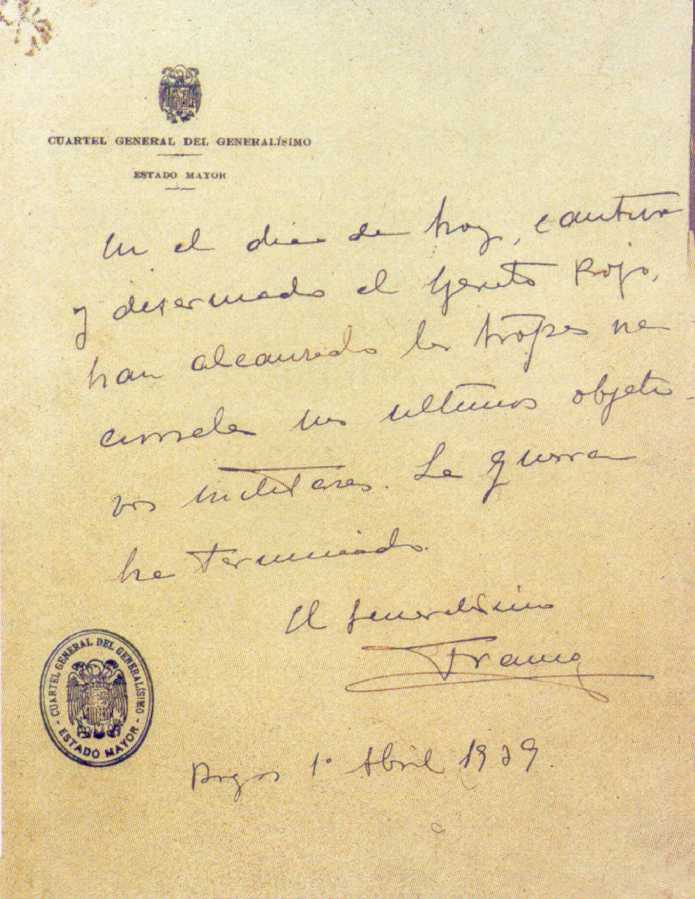 CUARTEL GENERAL DEL GENERALÍSIMO
ESTADO MAYOR
En el dia de hoy, cautivo
y desarmado el Ejercito Rojo,
han alcanzado las tropas na
cionales sus ultimos objeti-
vos militares. La guerra
ha terminado.
El Generalisimo
Franco
CUARTEL GENERAL DEL GENERALÍSIMO
- ESTADO MAYOR -
Burgos 1º Abril 1939.